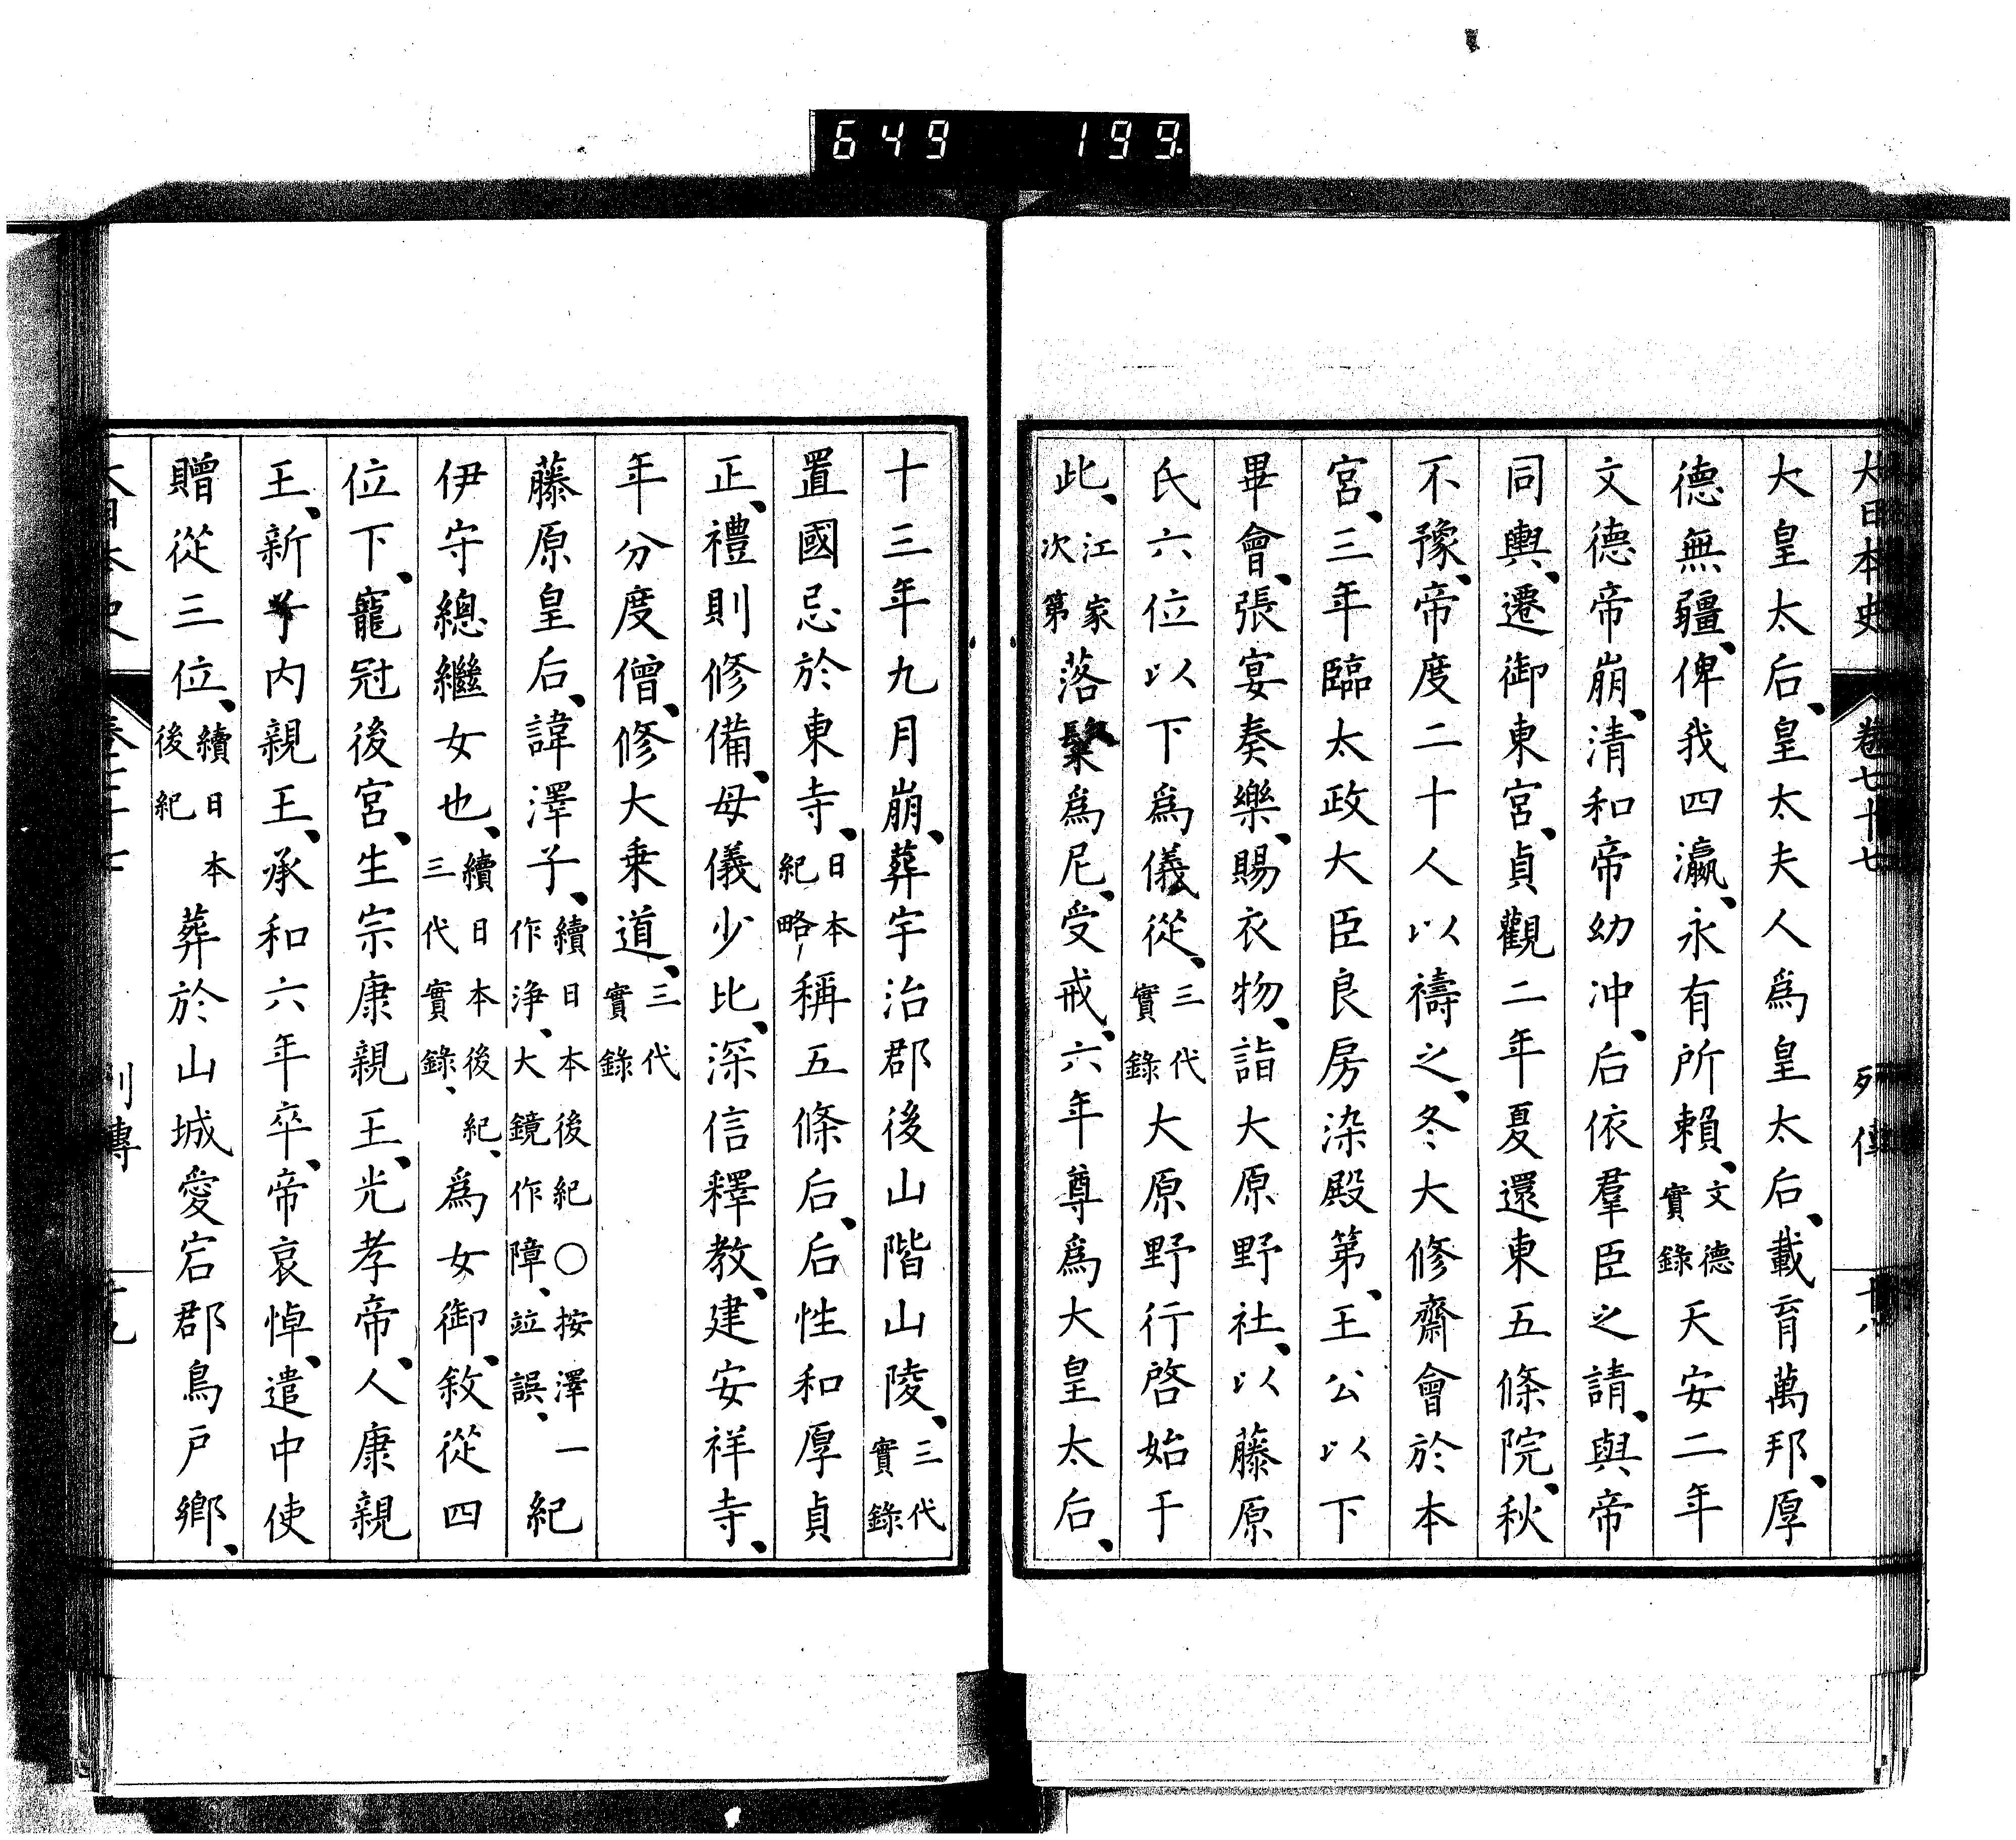 649 199
大日本史 卷七十七 列傳 十八
大皇太后、皇太夫人爲皇太后、載育萬邦、厚
德無疆、俾我四瀛、永有所賴、文德實錄天安二年
文德帝崩、清和帝幼冲、后依羣臣之請、與帝
同輿、遷御東宮、貞觀二年夏還東五條院、秋
不豫、帝度二十人以禱之、冬大修齋會於本
宮、三年臨太政大臣良房染殿第、王公以下
畢會、張宴奏樂、賜衣物、詣大原野社、以藤原
氏六位以下爲儀從、三代實錄大原野行啓始于
此、江家次第落髮爲尼、受戒、六年尊爲大皇太后、
十三年九月崩、葬宇治郡後山階山陵、三代實錄
置國忌於東寺、日本紀略稱五條后、后性和厚貞
正、禮則修備、母儀少比、深信釋教、建安祥寺、
年分度僧、修大乗道、三代實錄
藤原皇后、諱澤子、續日本後紀○按澤一作淨、大鏡作障、竝誤、紀
伊守總繼女也、續日本後紀、三代實錄、爲女御、敘從四
位下、寵冠後宮、生宗康親王、光孝帝、人康親
王、新子内親王、承和六年卒、帝哀悼、遣中使
贈從三位、續日本後紀葬於山城愛宕郡鳥戶鄉、
大日本史 卷七十七 列傳 十九